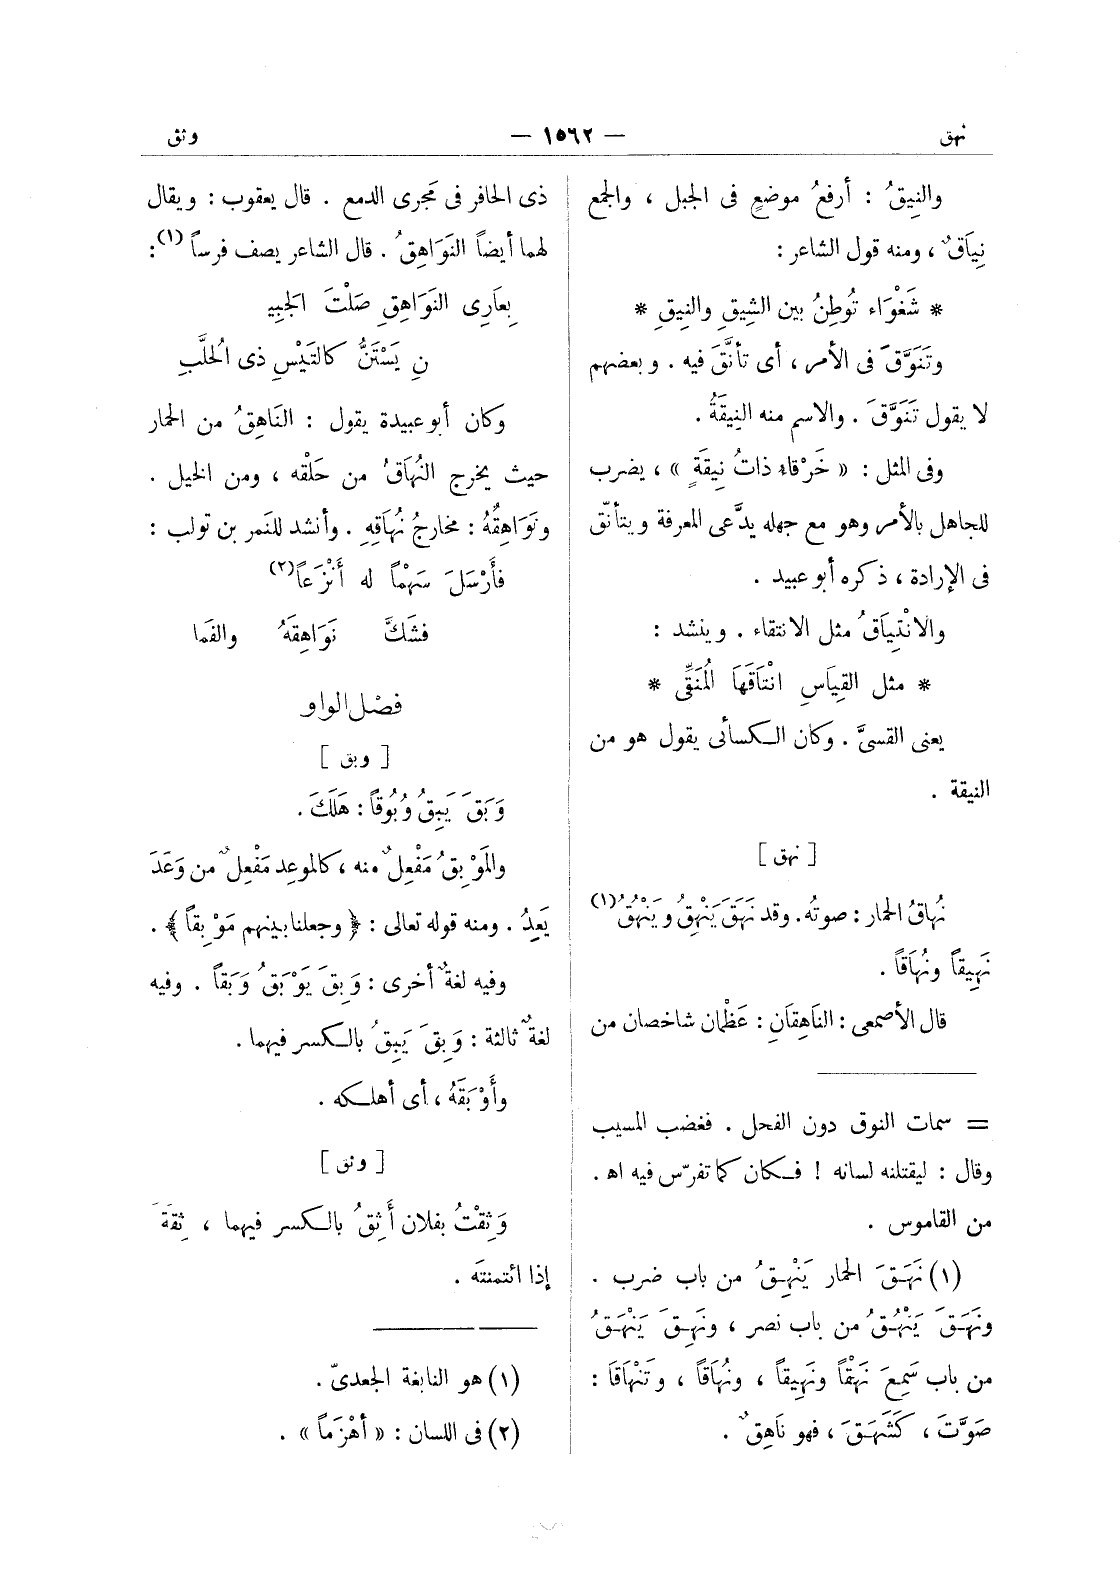 نهق
— ١٥٦٢ —
وثق
والنِيقُ : أرفعُ موضعٍ فى الجبل ، والجمع
نِيَاقٌ ، ومنه قول الشاعر :
* شَغْوَاء تُوطِنُ بين الشِيقِ والنِيقِ *
وتَنَوَّقَ فى الأمر ، أى تأنَّقَ فيه . وبعضهم
لا يقول تَنَوَّقَ . والاسم منه النِيقَةُ .
وفى المثل : « خَرْقاءُ ذاتُ نِيقَةٍ » ، يضرب
للجاهل بالأمر وهو مع جهله يدَّعى المعرفة ويتأنّق
فى الإرادة ، ذكره أبو عبيد .
والانْتِيَاقُ مثل الانتقاء . وينشد :
* مثل القِيَاسِ انْتَاقَهَا المُنَقِّى *
يعنى القسىَّ . وكان الكسائى يقول هو من
النيقة .
[ نهق ]
نُهاقُ الحمار : صوتُه . وقد نَهَقَ يَنْهِقُ ويَنْهُقُ(١)
نَهِيقاً ونُهَاقاً .
قال الأصمعى : النَاهِقَانِ : عَظْمان شاخصان من
= سمات النوق دون الفحل . فغضب المسيب
وقال : ليقتلنه لسانه ! فكان كما تفرّس فيه اه .
من القاموس .
(١) نَهَقَ الحمار يَنْهِقُ من باب ضرب .
ونَهَقَ يَنْهُقُ من باب نصر ، ونَهِقَ يَنْهَقُ
من باب سَمِعَ نَهْقاً ونَهِيقاً ، ونُهَاقاً ، وتَنْهَاقَا :
صَوَّتَ ، كَشَهَقَ ، فهو نَاهِقٌ .
ذى الحافر فى مَجرى الدمع . قال يعقوب : ويقال
لهما أيضاً النَوَاهِقُ . قال الشاعر يصف فرساً(١) :
بِعَارِى النَوَاهِقِ صَلْتَ الجَبِيـ
ـنِ يَسْتَنُّ كالتَيْسِ ذى الحُلَّبِ
وكان أبو عبيدة يقول : النَاهِقُ من الحمار
حيث يخرج النُهَاقُ من حَلْقه ، ومن الخيل .
ونَوَاهِقُهُ : مخارجُ نُهَاقِهِ . وأنشد للنَمر بن تولب :
فأَرْسَلَ سَهْماً له أَنْزَعاً(٢)
فشَكَّ نَوَاهِقَهُ والفَما
فصْل الواو
[ وبق ]
وَبَقَ يَبِقُ وُبُوقاً : هَلَكَ .
والمَوْبِقُ مَفْعِلٌ منه ، كالموعِد مَفْعِلٌ من وَعَدَ
يَعِدُ . ومنه قوله تعالى : ﴿ وجعلنا بينهم مَوْبِقاً ﴾ .
وفيه لغةٌ أخرى : وَبِقَ يَوْبَقُ وَبَقاً . وفيه
لغةٌ ثالثة : وَبِقَ يَبِقُ بالكسر فيهما .
وأَوْبَقَهُ ، أى أهلكه .
[ وثق ]
وَثِقْتُ بفلان أَثِقُ بالكسر فيهما ، ثِقَةً
إذا ائتمنتَه .
(١) هو النابغة الجعدىّ .
(٢) فى اللسان : « أهْزَماً » .